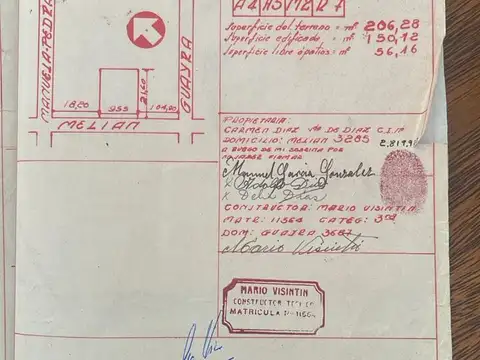 A2 H3/12 R7
Superficie del terreno = m² 206,28
Superficie edificada = m² 150,12
Superficie libre o patios = m² 56,16
MANUELA PEDRA
GUAYRA
21,60
18,20 955 104,90
MELIAN
PROPIETARIA:
CARMEN DIAZ Vda DE DIAZ C.I.N
DOMICILIO: MELIAN 3285
2.819.9
A RUEGO DE MI SEÑORA POR
NO SABER FIRMAR
Manuel Garcia Gonzalez
X Adolfo Diaz
X Delia Días
CONSTRUCTOR: MARIO VISINTIN
MATR: 11564 CATEG: 3ra
DOM: GUAYRA 3687
Mario Visintin
MARIO VISINTIN
CONSTRUCTOR
MATRICULA Nº 11564